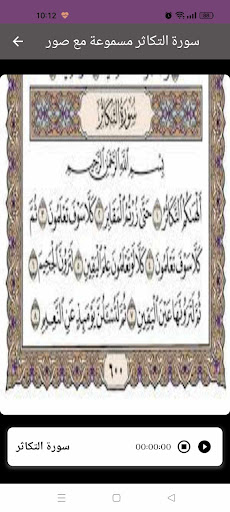 10:12
سورة التكاثر مسموعة مع صور
سُورَةُ التَّكَاثُرِ
بِسْمِ اللَّهِ الرَّحْمَٰنِ الرَّحِيمِ
أَلْهَاكُمُ التَّكَاثُرُ ١ حَتَّىٰ زُرْتُمُ الْمَقَابِرَ ٢ كَلَّا سَوْفَ تَعْلَمُونَ ٣ ثُمَّ
كَلَّا سَوْفَ تَعْلَمُونَ ٤ كَلَّا لَوْ تَعْلَمُونَ عِلْمَ الْيَقِينِ ٥ لَتَرَوُنَّ الْجَحِيمَ ٦
ثُمَّ لَتَرَوُنَّهَا عَيْنَ الْيَقِينِ ٧ ثُمَّ لَتُسْأَلُنَّ يَوْمَئِذٍ عَنِ النَّعِيمِ ٨
٦٠٠
سورة التكاثر 00:00:00